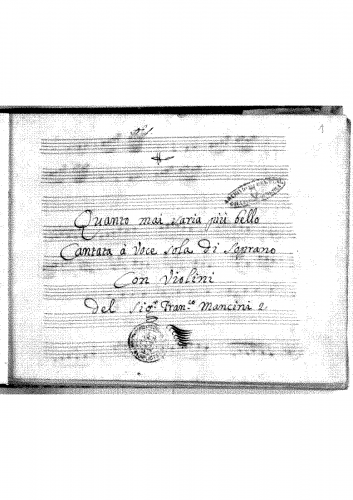 1
Quanto mai saria più bello
Cantata à Voce Sola di Soprano
Con Violini
Del Sig.r Fran.co Mancini 2.